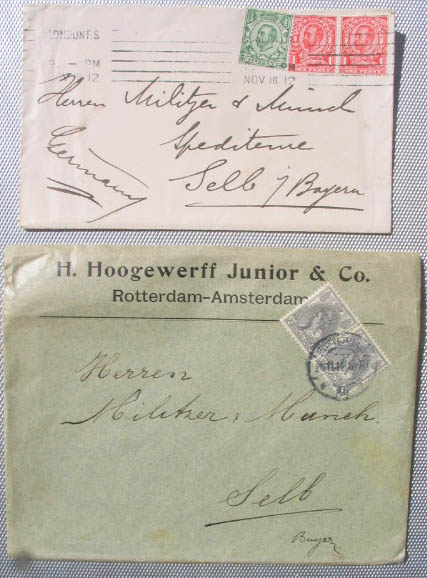 LONDON F.S.
NOV 16 12
Herren Militzer & Münch
Spediteure
Selb / Bayern
Germany
H. Hoogewerff Junior & Co.
Rotterdam-Amsterdam
Herren
Militzer & Münch.
Selb
Bayern